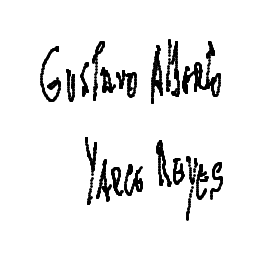 Gustavo Alberto
Yarce Reyes